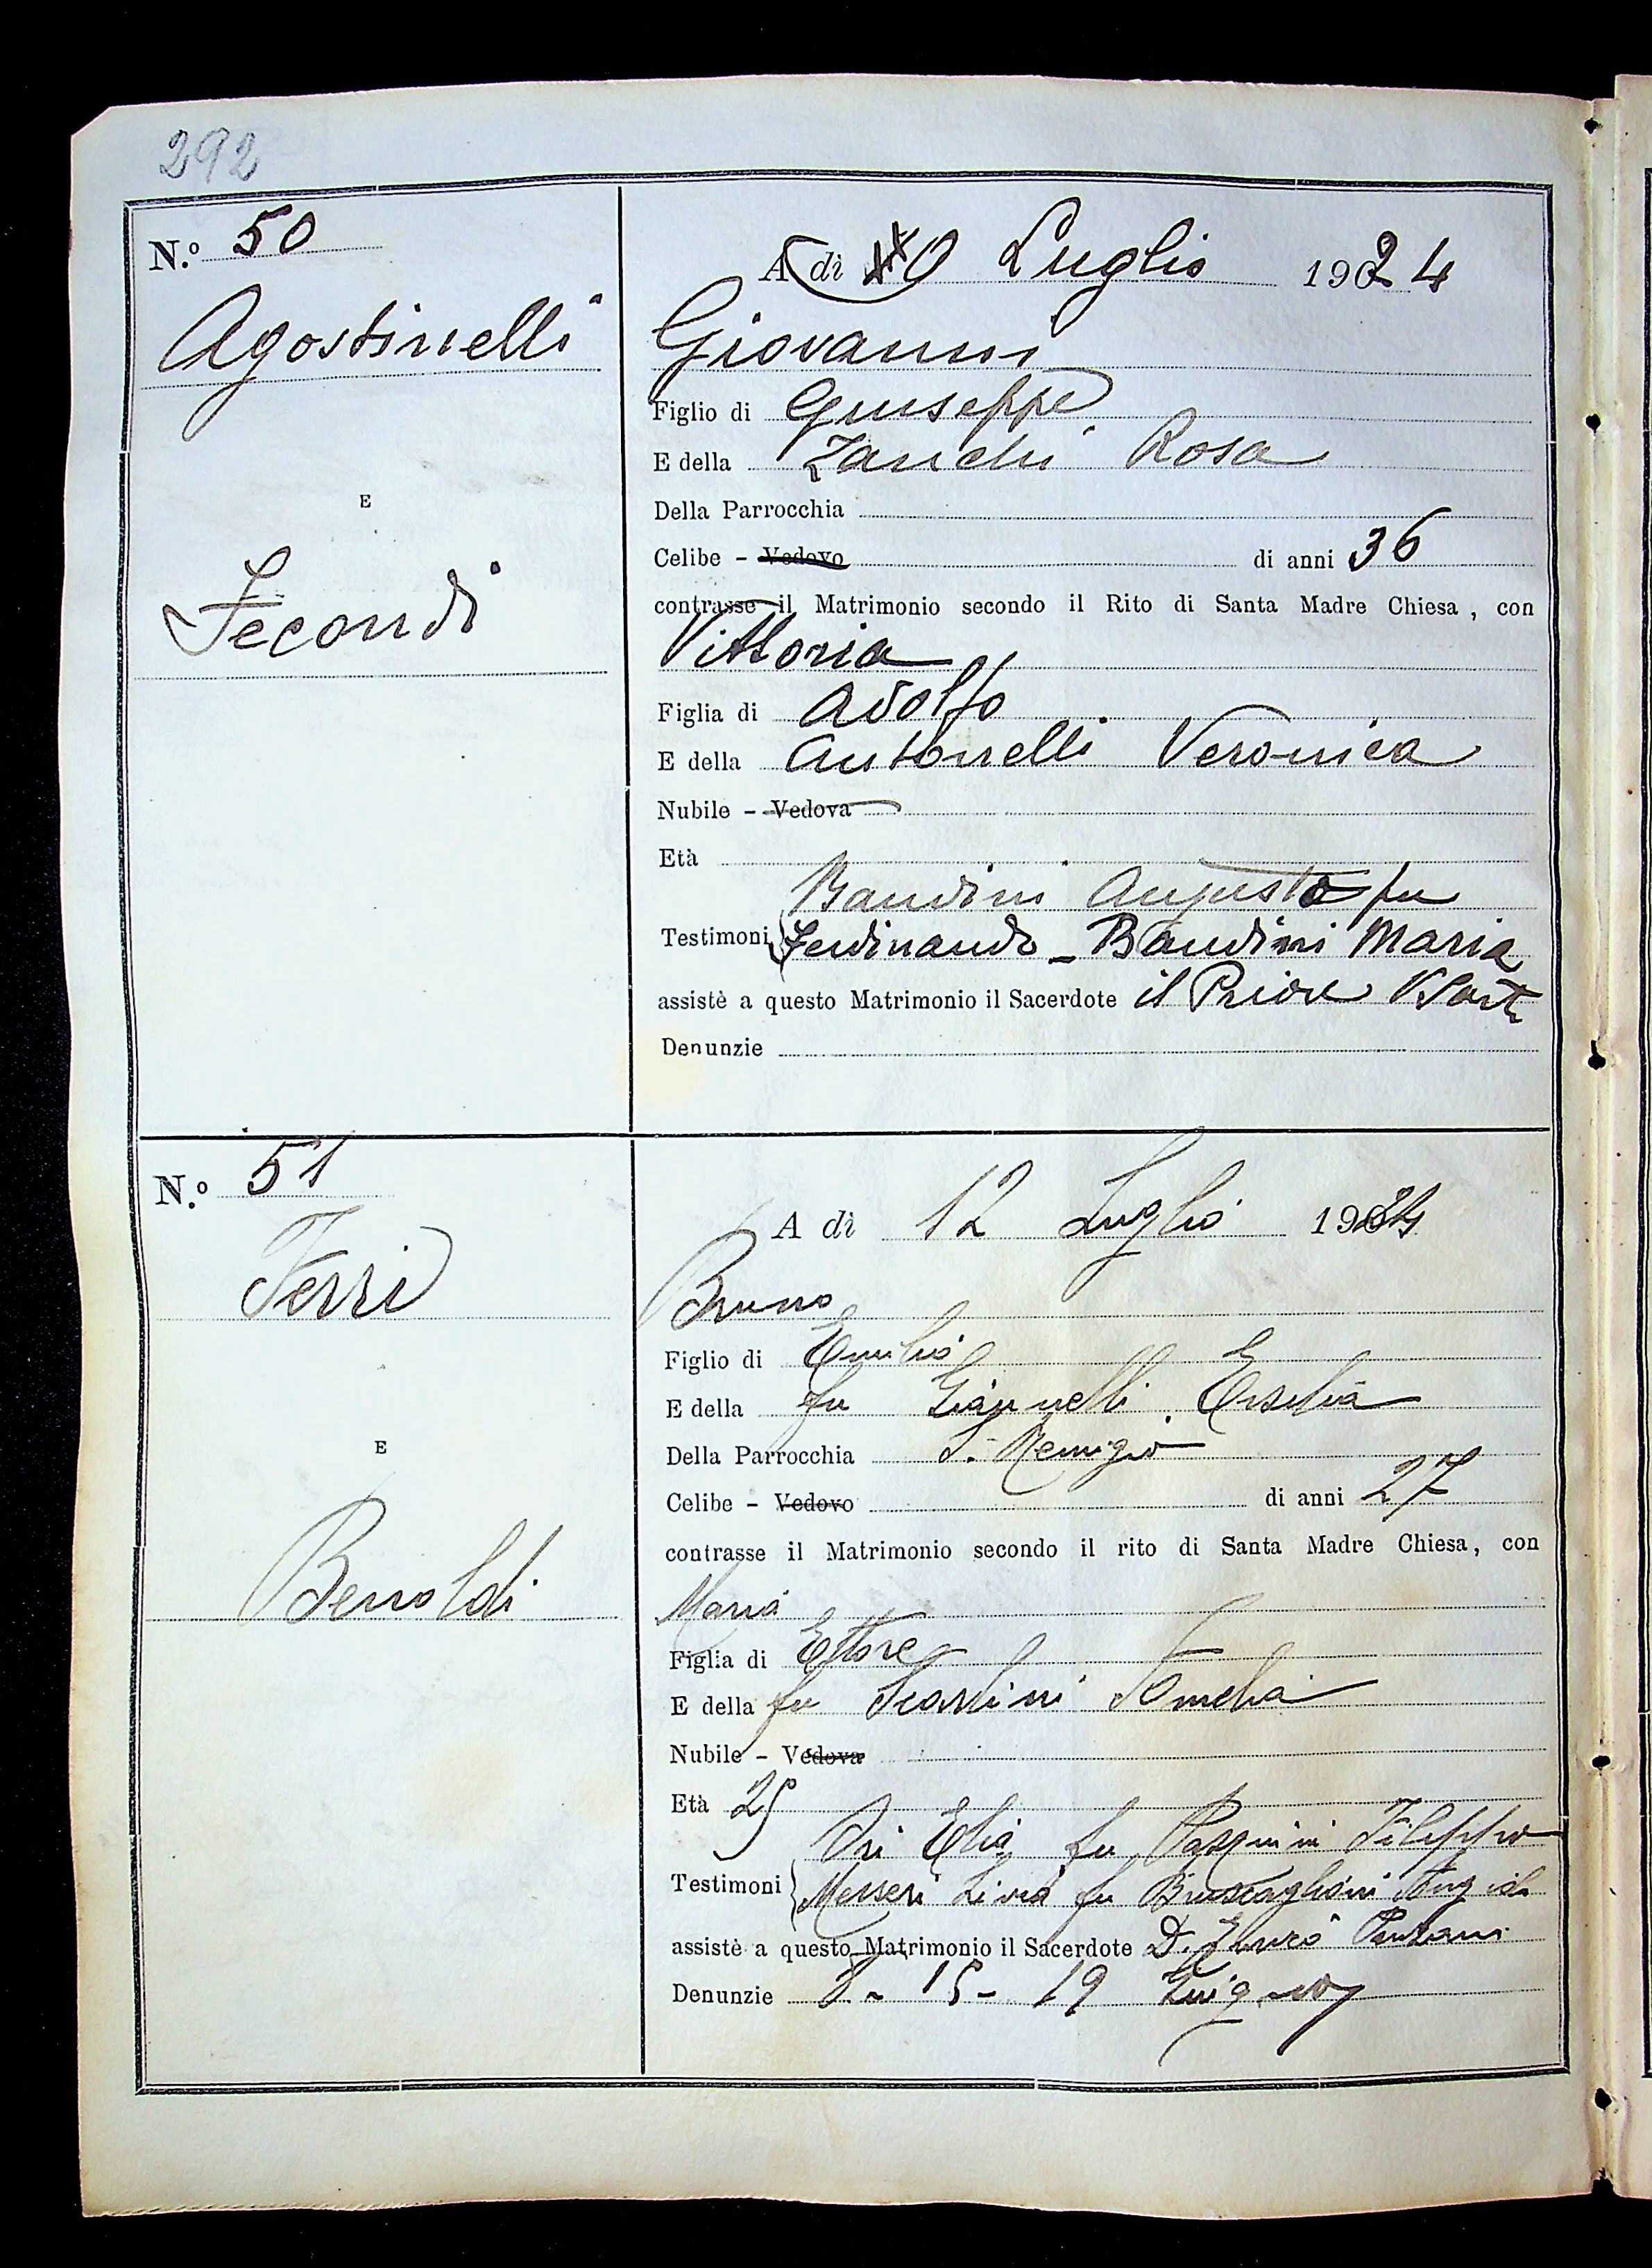 292
N.º 50
A dì 10 Luglio 1924
Agostinelli
Giovanni
Figlio di Giuseppe
E della Zanchi Rosa
E
Della Parrocchia
Celibe - Vedovo di anni 36
contrasse il Matrimonio secondo il Rito di Santa Madre Chiesa, con
Secondi
Vittoria
Figlia di Adolfo
E della Antonelli Veronica
Nubile - Vedova
Età
Bandini Augusto fu
Testimoni Ferdinando - Bandini Maria
assistè a questo Matrimonio il Sacerdote il Priore
Denunzie
N.º 51
A dì 12 Luglio 1924
Ferri
Bruno
Figlio di Emilio
E della fu Giannelli Ersilia
E
Della Parrocchia S. Remigio
Celibe - Vedovo di anni 27
contrasse il Matrimonio secondo il rito di Santa Madre Chiesa, con
Benoldi
Maria
Figlia di Ettore
E della fu Amelia
Nubile - Vedova
Età 25
fu Filippo
Testimoni Messeri Livia fu Bruscaglioni
assistè a questo Matrimonio il Sacerdote D.
Denunzie 8 - 15 - 19 Giugno